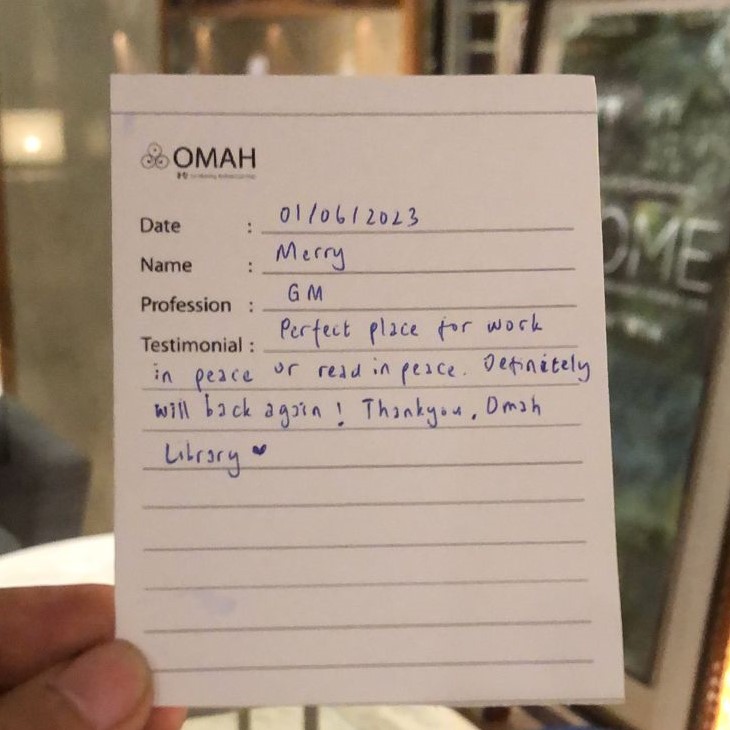 OMAH
Date : 01/06/2023
Name : Merry
Profession : GM
Testimonial : Perfect place for work
in peace or read in peace. Definitely
will back again! Thankyou, Omah
Library ♥
OME